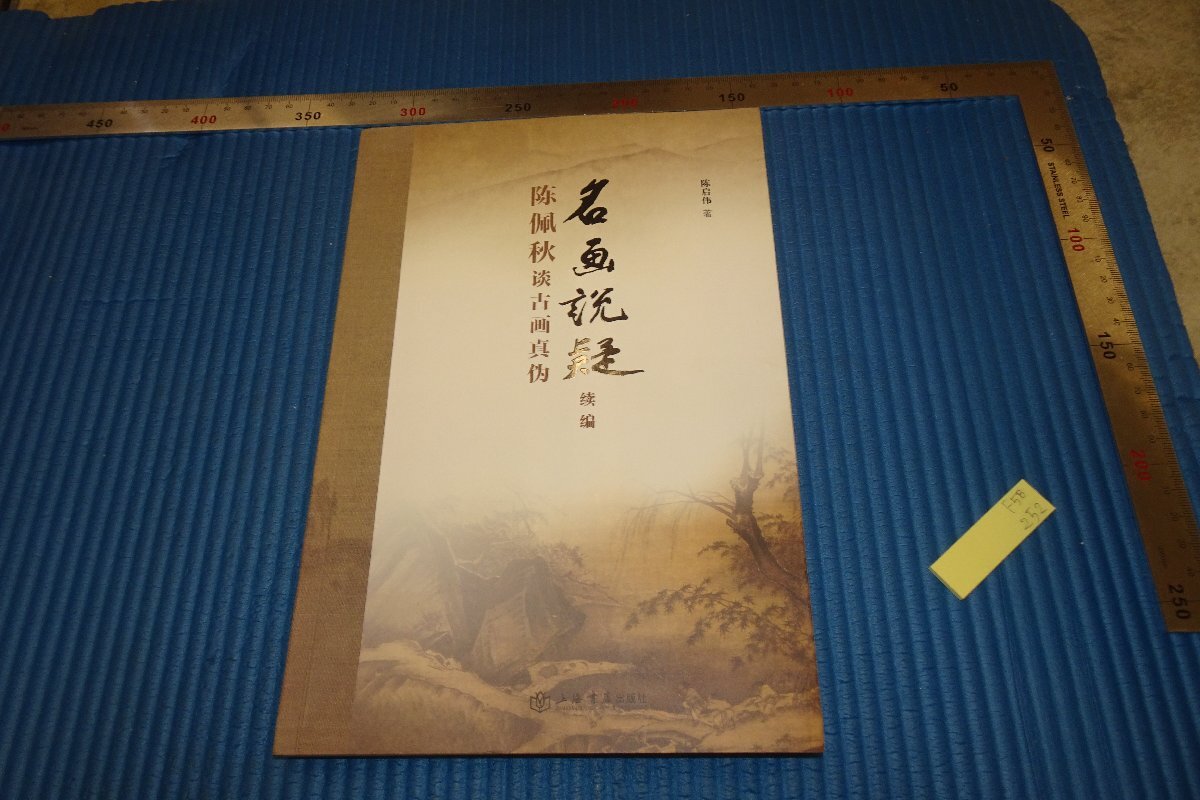 450 400 350 300 250 200 150 100 50
50
STAINLESS STEEL
100
150
200
250
陈启伟 著
名画説疑
续编
陈佩秋谈古画真伪
上海书店出版社
F5B
252